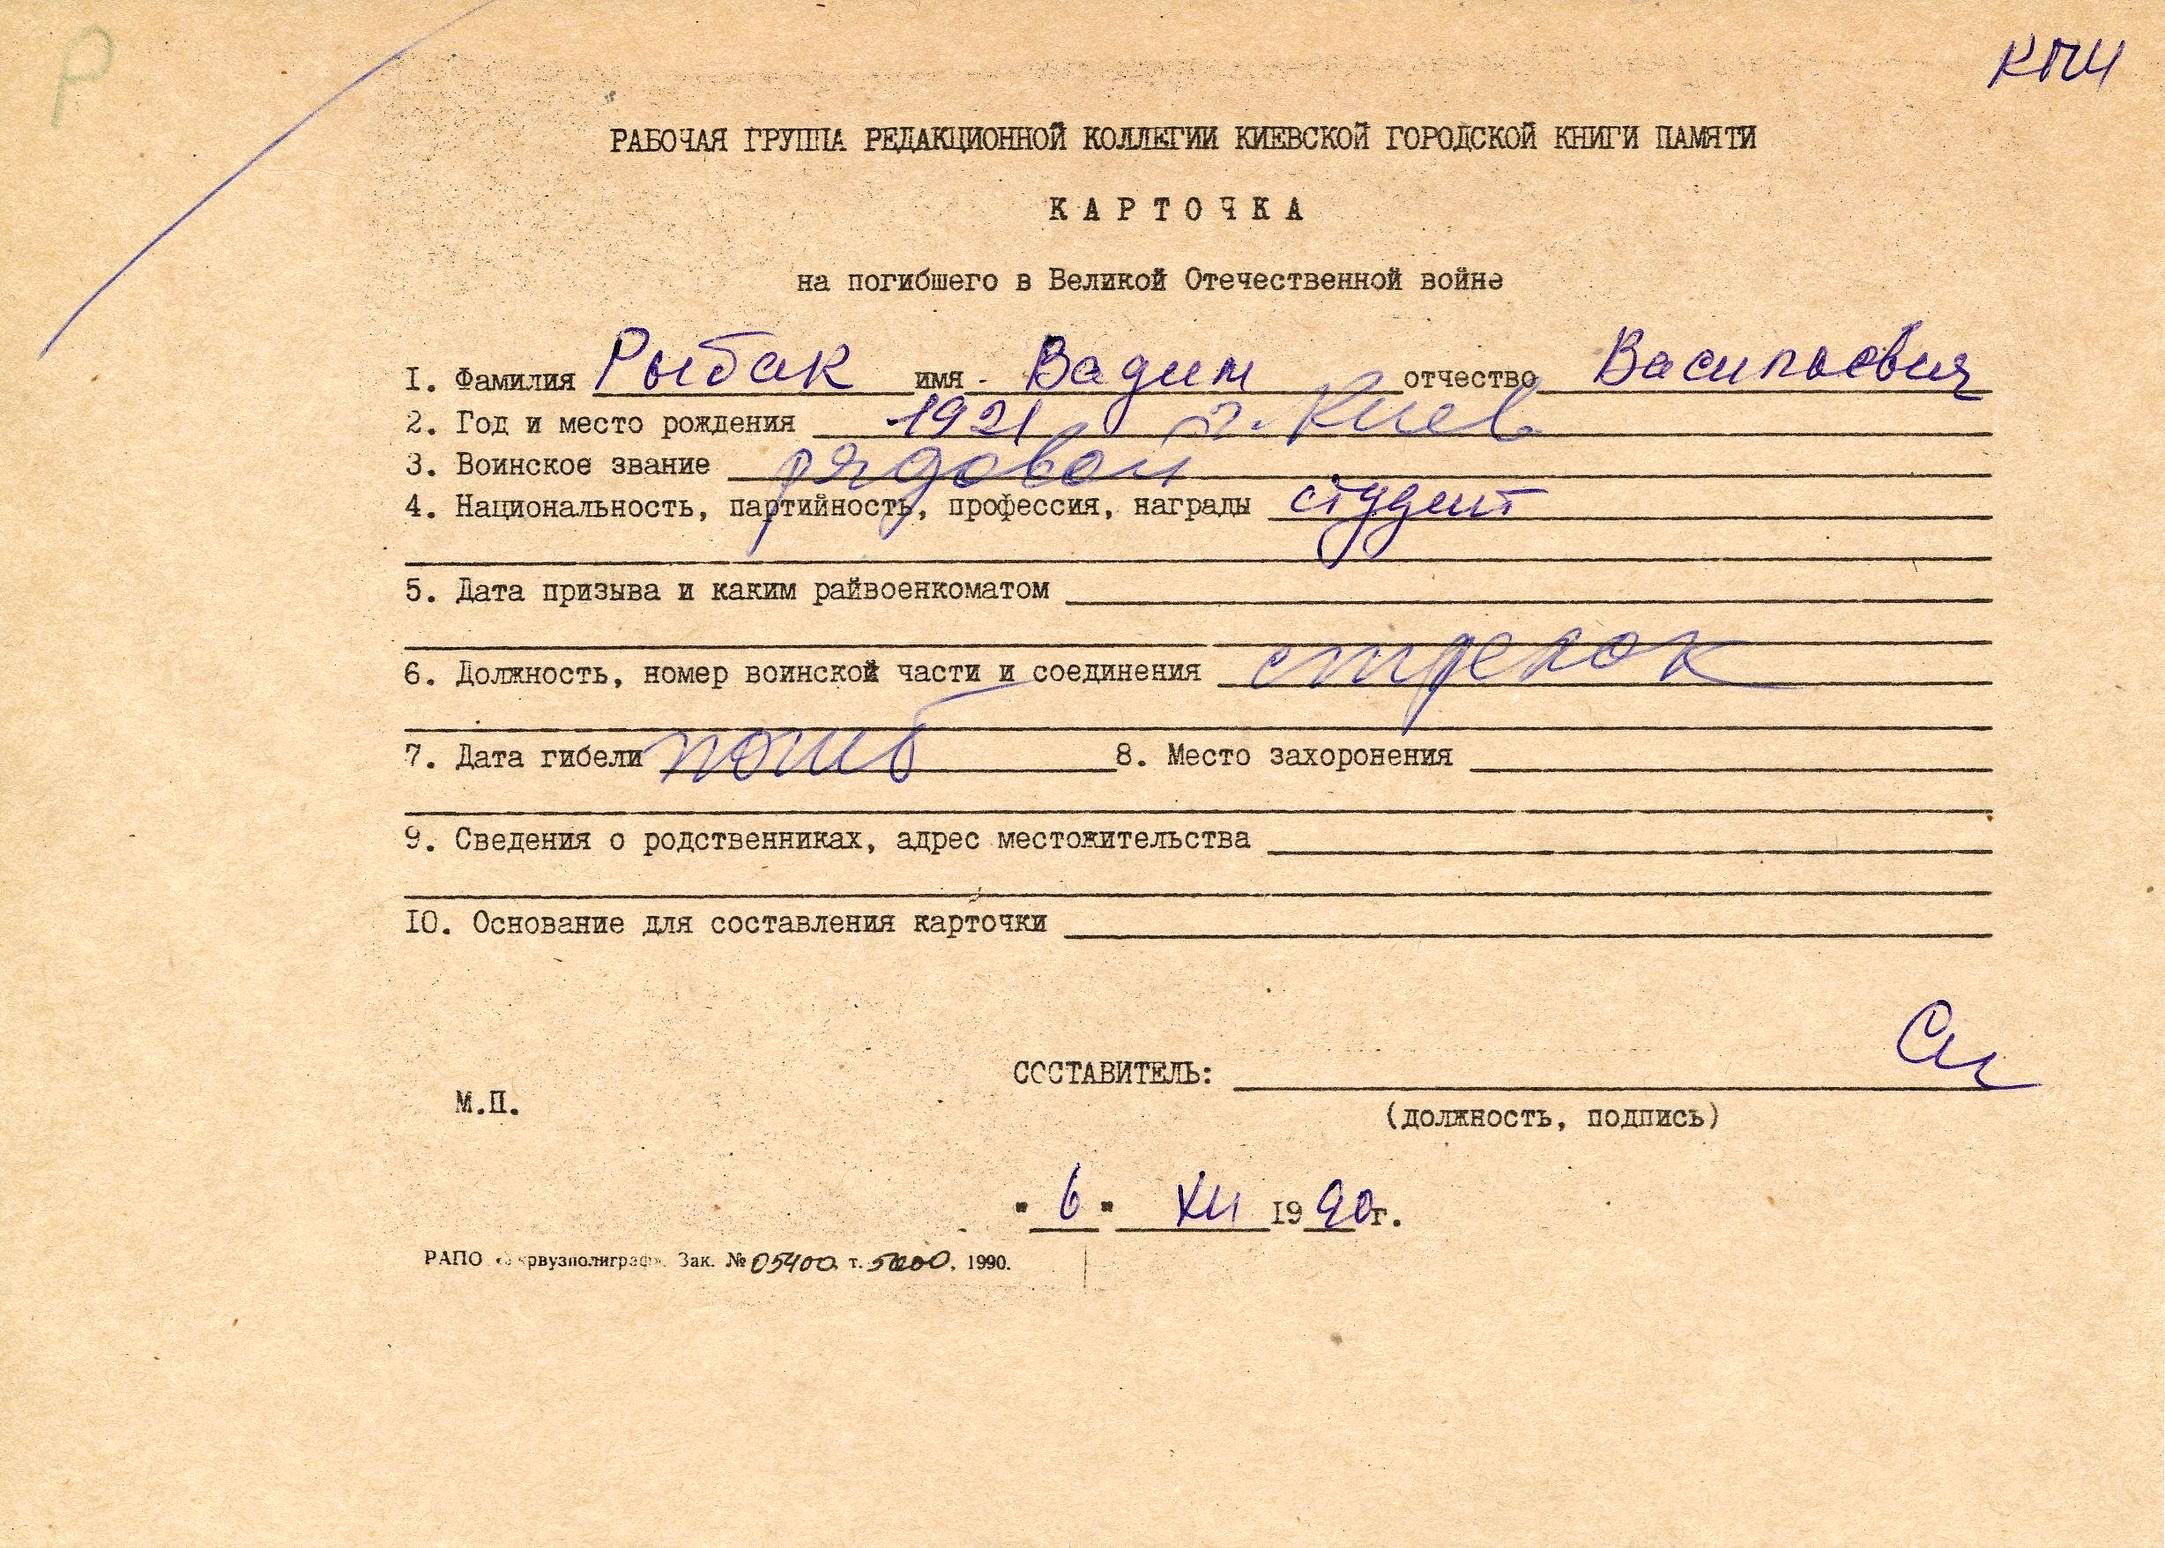 Р
КПИ
РАБОЧАЯ ГРУППА РЕДАКЦИОННОЙ КОЛЛЕГИИ КИЕВСКОЙ ГОРОДСКОЙ КНИГИ ПАМЯТИ
КАРТОЧКА
на погибшего в Великой Отечественной войне
1. Фамилия Рыбак имя Вадим отчество Васильевич
2. Год и место рождения 1921 г. Киев
3. Воинское звание рядовой
4. Национальность, партийность, профессия, награды студент
5. Дата призыва и каким райвоенкоматом
6. Должность, номер воинской части и соединения стрелок
7. Дата гибели погиб 8. Место захоронения
9. Сведения о родственниках, адрес местожительства
10. Основание для составления карточки
СОСТАВИТЕЛЬ:
М.П.
(должность, подпись)
"6" XII 1990г.
РАПО «Укрвузполиграф». Зак. № 05400 т. 5000. 1990.